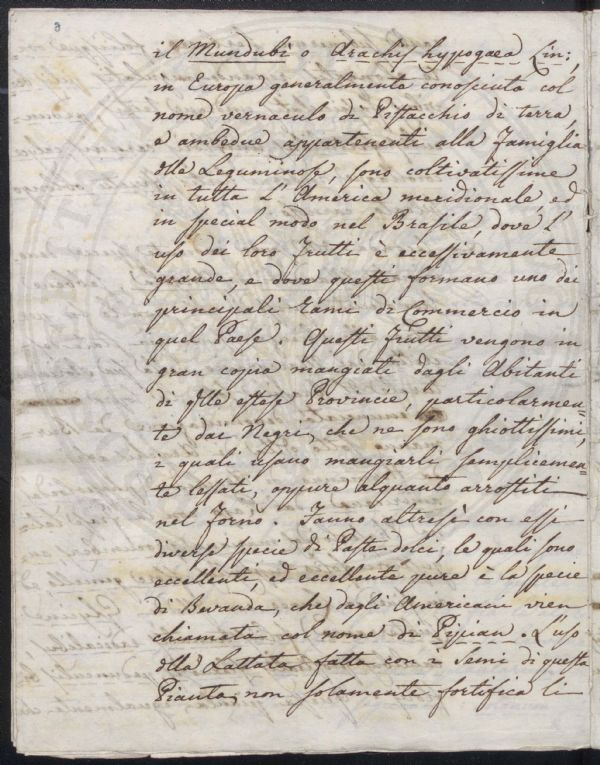 il Mundubì o Arachis hypogaea Lin:,
in Europa generalmente conosciuta col
nome vernaculo di Pistacchio di terra,
e ambedue appartenenti alla Famiglia
dlle Leguminose, sono coltivatissime
in tutta l'America meridionale, ed
in special modo nel Brasile, dove l'
uso dei loro Frutti è eccessivamente
grande, e dove questi formano uno dei
principali Rami di Commercio in
quel Paese. Questi Frutti vengono in
gran copia mangiati dagli Abitanti
di qlle estese Provincie, particolarmen=
te dai Negri, che ne sono ghiottissimi,
i quali usano mangiarli semplicemen=
te lessati, oppure alquanto arrostiti
nel Forno. Fanno altresì con essi
diverse specie di Paste dolci, le quali sono
eccellenti, ed eccellente pure è la specie
di Bevanda, che dagli Americani vien
chiamata col nome di . L'uso
dlla Lattata fatta con i Semi di questa
Pianta, non solamente fortifica li